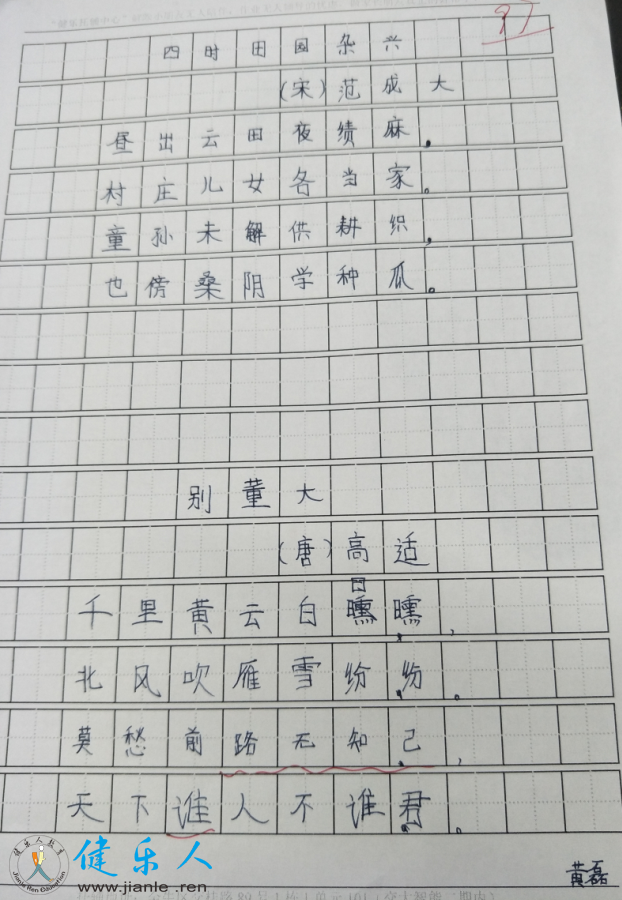 四时田园杂兴
(宋)范成大
昼出云田夜绩麻，
村庄儿女各当家。
童孙未解供耕织，
也傍桑阴学种瓜。
别董大
(唐)高适
千里黄云白曛曛，
北风吹雁雪纷纷。
莫愁前路无知己，
天下谁人不谁君。
黄磊
健乐人教育
Jianle Ren Education
健乐人
www.jianle.ren